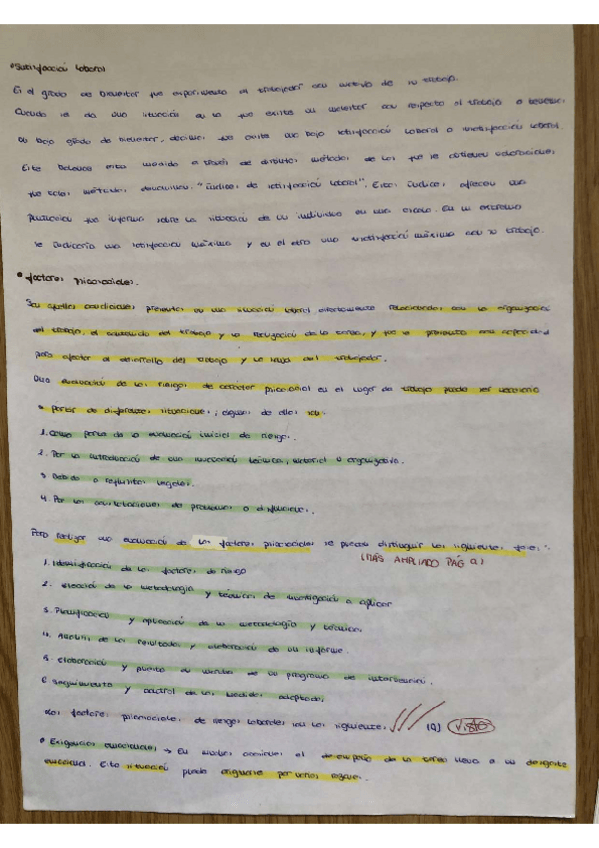 • Satisfacción laboral
Es el grado de bienestar que experimenta el trabajador con motivo de su trabajo.
Cuando se da una situación en la que existe un malestar con respecto al trabajo o
un bajo grado de bienestar, decimos que existe una baja satisfacción laboral o insatisfacción laboral.
Este balance está medido a través de distintos métodos, de los que se obtienen valoraciones,
que estos métodos denominan "índices de satisfacción laboral". Estos índices ofrecen una
puntuación que informa sobre la situación de un individuo en una escala. En un extremo
se indicaría una satisfacción máxima y en el otro una insatisfacción máxima con su trabajo.
• Factores psicosociales.
Son aquellas condiciones presentes en una situación laboral directamente relacionadas con la organización
del trabajo, el contenido del trabajo y la realización de la tarea, y que se presenta con capacidad
para afectar al desarrollo del trabajo y la salud del trabajador.
Una evaluación de los riesgos de carácter psicosocial en el lugar de trabajo puede ser necesario
a partir de diferentes situaciones; algunas de ellas son:
1. Como parte de la evaluación inicial de riesgo.
2. Por la introducción de una innovación técnica, material u organizativa.
3 Debido a requisitos legales.
4. Por las constataciones de problemas o disfunciones.
Para realizar una evaluación de los factores psicosociales se pueden distinguir las siguientes fases:
(MÁS AMPLIADO PÁG 9)
1. Identificación de los factores de riesgo
2. Elección de la metodología y técnicas de investigación a aplicar
3. Planificación y aplicación de la metodología y técnicas.
4. Análisis de los resultados y elaboración de un informe.
5. Elaboración y puesta en marcha de un programa de intervención.
6 Seguimiento y control de las medidas adoptadas.
Los factores psicosociales de riesgos laborales son los siguientes: Visto
• Exigencias emocionales → En muchas ocasiones el desempeño de la tarea lleva a un desgaste
emocional. Esta situación puede originarse por varias razones.